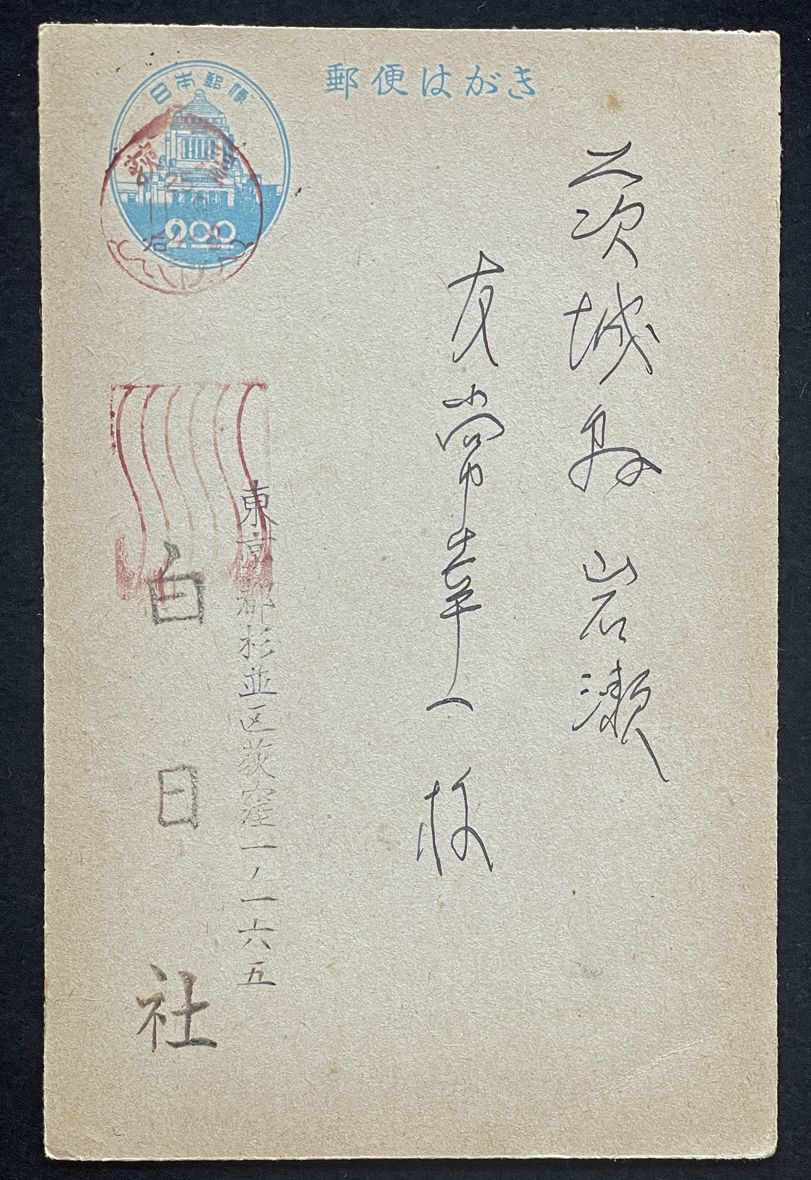 郵便はがき
日本郵便
2.00
茨城县 岩瀬
友常幸一様
東京都杉並区荻窪一ノ一六五
白日社